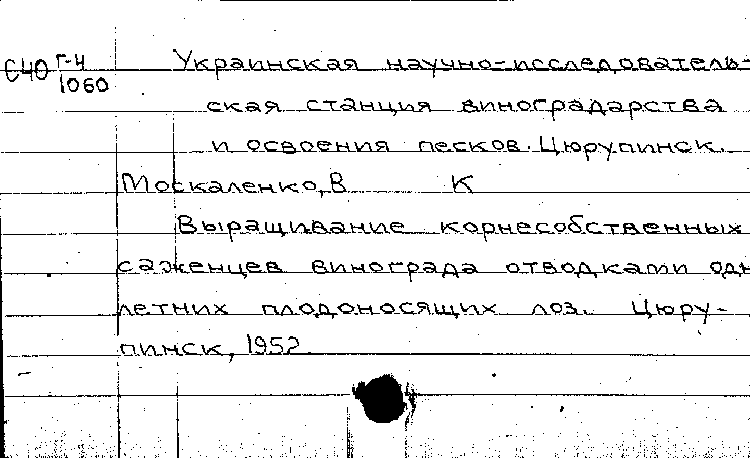 С40 Г-4 Украинская научно-исследователь-
1060
ская станция виноградарства
и освоения песков. Цюрупинск.
Москаленко, В К
Выращивание корнесобственных
саженцев винограда отводками одн
летних плодоносящих лоз. Цюру-
пинск, 1952.